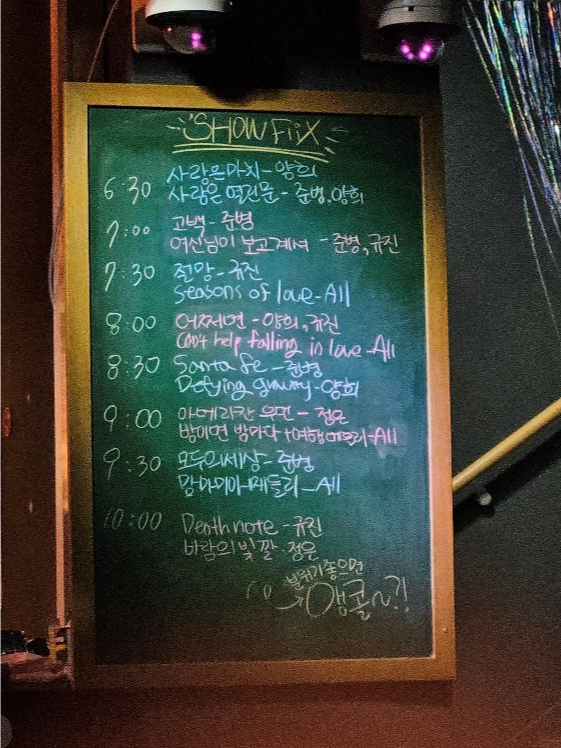 SHOW FIIX
6:30 사랑은 마치 - 양희
사랑은 열린문 - 준병, 양희
7:00 고백 - 준병
여신님이 보고계셔 - 준병, 규진
7:30 절망 - 규진
Seasons of love - All
8:00 어쩌면 - 양희, 규진
Can't help falling in love - All
8:30 Santa fe - 준병
Defying gravity - 양희
9:00 아메리칸 - 정은
밤이면 밤마다 + 여행 메들리 - All
9:30 모두의 세상 - 준병
맘마미아 메들리 - All
10:00 Death note - 규진
바람의 빛깔 - 정은
분위기 좋으면
→ 앵콜~?!